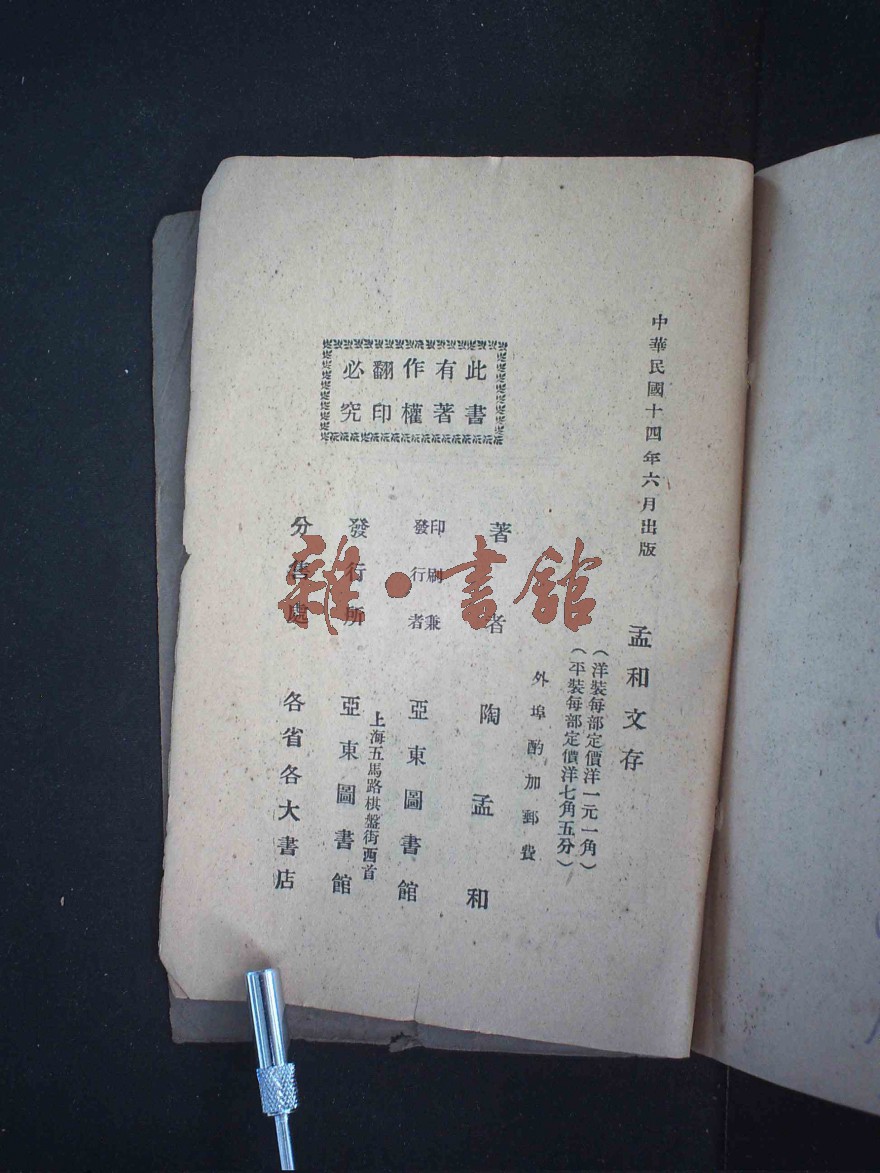 中華民國十四年六月出版
孟和文存
（洋裝每部定價洋一元一角）
（平裝每部定價洋七角五分）
外埠酌加郵費
著者 陶孟和
印刷兼發行者 亞東圖書館
上海五馬路棋盤街西首
發行所 亞東圖書館
分售處 各省各大書店
此書
有著
作權
翻印
必究
雜·書館